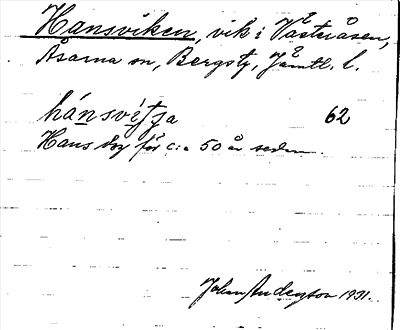 Hansviken, vik i Västeråsen,
Åsarna sn, Bergs tg, Jämtl. l.
hánsvé̱tʃa 62
Hans dog för c:a 50 år sedan.
Johan Anderson 1931.